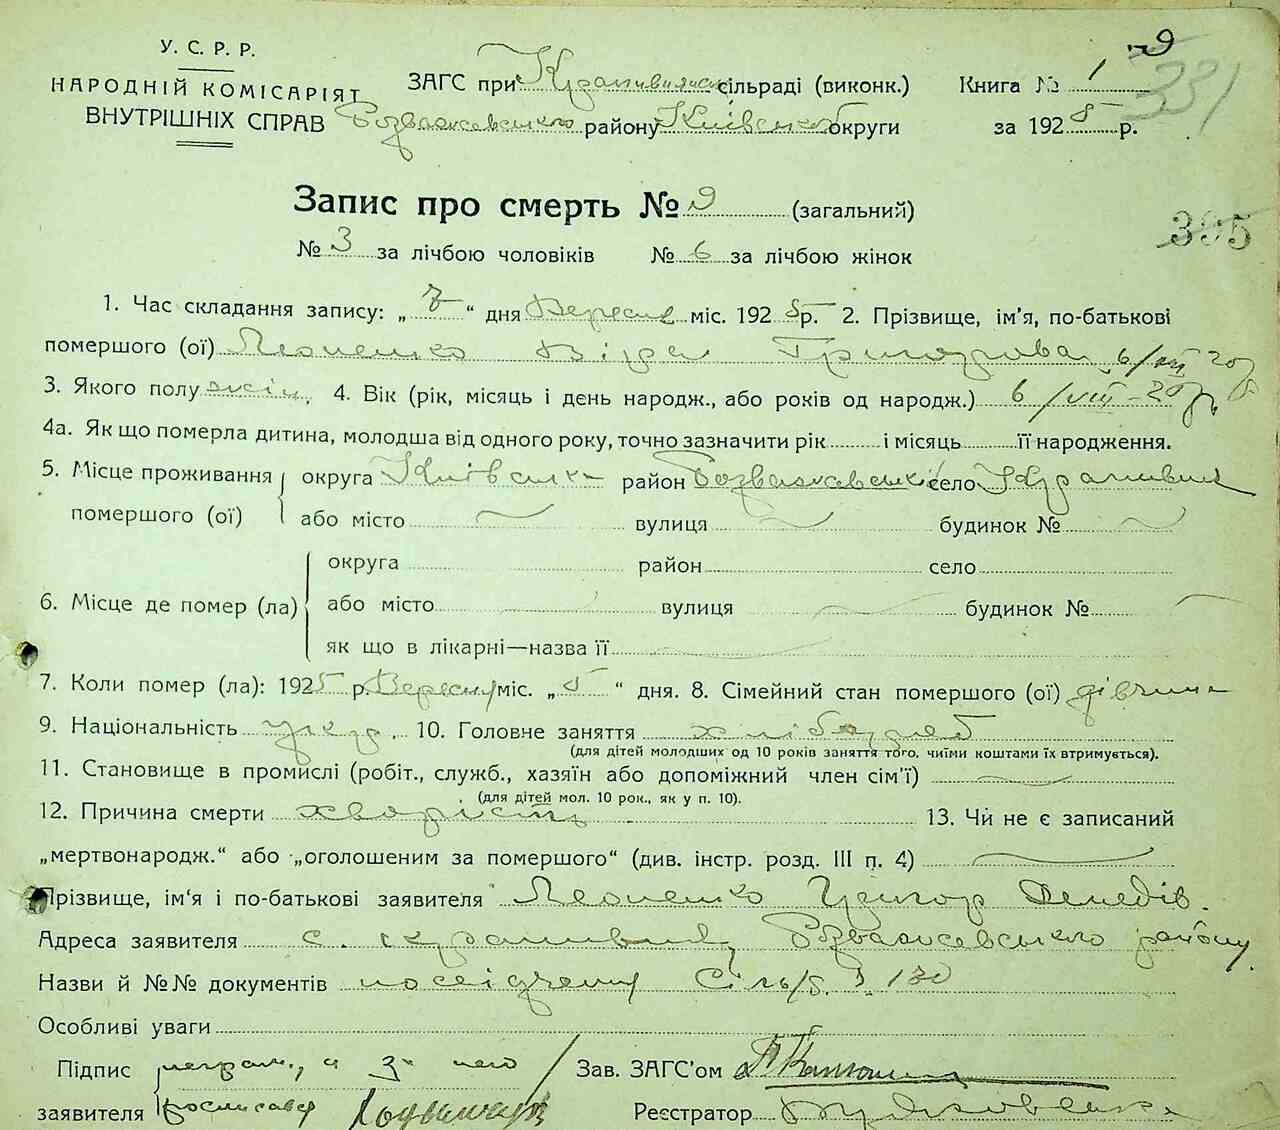 У. С. Р. Р.
НАРОДНІЙ КОМІСАРІЯТ
ВНУТРІШНІХ СПРАВ
ЗАГС при сільраді (виконк.)
Розважевського району Київської округи
Книга № 1
за 1925 р.
9
331
395
Запис про смерть № 9 (загальний)
№ 3 за лічбою чоловіків № 6 за лічбою жінок
1. Час складання запису: „ 7 “ дня Вересня міс. 1925 р. 2. Прізвище, ім'я, по-батькові
помершого (ої) Леоненко Віра 6/VIII 20р
3. Якого полу жін. 4. Вік (рік, місяць і день народж., або років од народж.) 6/VIII-20р.
4а. Як що померла дитина, молодша від одного року, точно зазначити рік і місяць її народження.
5. Місце проживання помершого (ої) округа Київська район Розважевський село Кративня
або місто вулиця будинок №
6. Місце де помер (ла) округа район село
або місто вулиця будинок №
як що в лікарні—назва її
7. Коли помер (ла): 1925 р. Вересня міс. „ 5 “ дня. 8. Сімейний стан помершого (ої) дівчина
9. Національність укр. 10. Головне заняття хлібороб
(для дітей молодших од 10 років заняття того, чиїми коштами їх втримується).
11. Становище в промислі (робіт., служб., хазяїн або допоміжний член сім'ї)
(для дітей мол. 10 рок., як у п. 10).
12. Причина смерти хворість 13. Чи не є записаний
„мертвонародж.“ або „оголошеним за помершого“ (див. інстр. розд. III п. 4)
Прізвище, ім'я і по-батькові заявителя Леоненко Григор
Адреса заявителя с. Розважевського району
Назви й №№ документів посвідчення Сіль/р. 130
Особливі уваги
Підпис заявителя неграм., а за него
росписався
Зав. ЗАГС'ом
Реєстратор